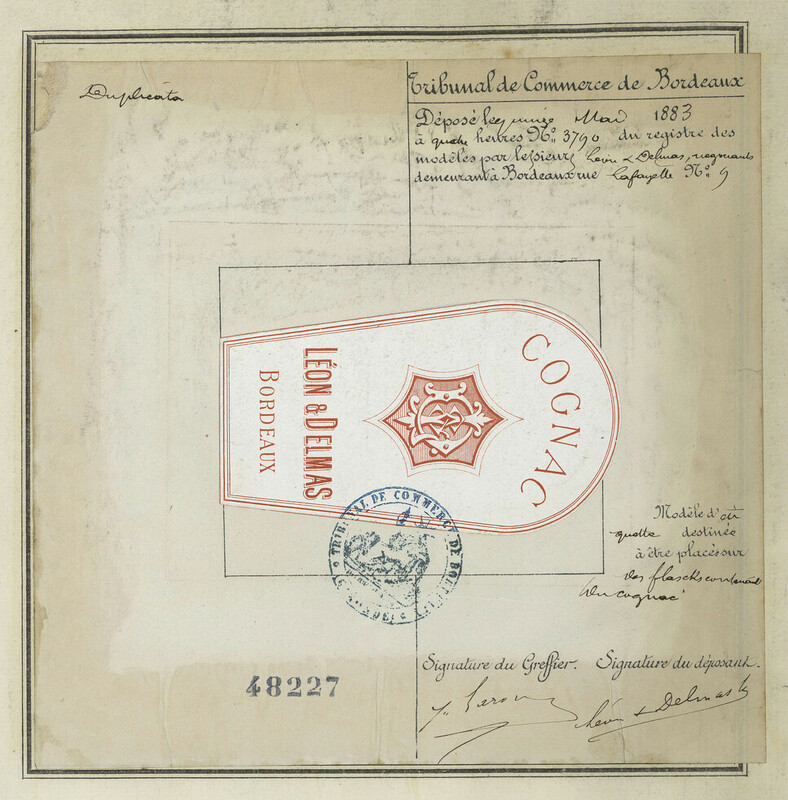 Duplicata
Tribunal de Commerce de Bordeaux
Déposé le quinze Mai 1883
à quatre heures No. 3790 du registre des
modèles par le sieurs Léon & Delmas, négociants
demeurant à Bordeaux rue Lafayette No. 9
COGNAC
LÉON & DELMAS
BORDEAUX
TRIBUNAL DE COMMERCE DE BORDEAUX
Modèle d'éti
quette destinée
à être placés sur
des flasks contenant
du cognac
48227
Signature du Greffier. Signature du déposant.
Léon & Delmas